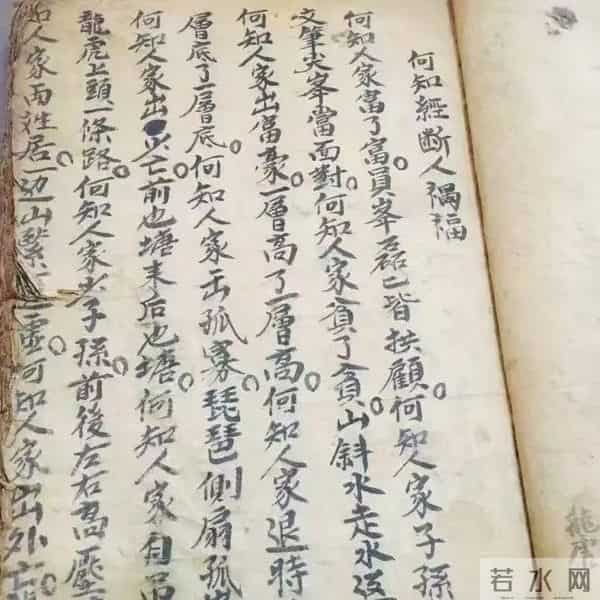 何知經断人禍福
何知人家富了富員峯磊〻皆拱顧何知人家子孫
文筆尖峯當面對何知人家貧了貧山斜水走水返
何知人家出富豪一層高了一層高何知人家退時
層底了一層底何知人家出孤寡琵琶側扇孤
何知人家出少亡前也塘来后也塘何知人家自吊
龍虎上頭一條路何知人家少子孫前後左右高壓
何知人家两姓居一边山緊一边虚何知人家出外亡
若水网